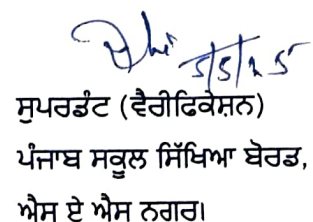 5/5/25
ਸੁਪਰਡੰਟ (ਵੈਰੀਫਿਕੇਸ਼ਨ)
ਪੰਜਾਬ ਸਕੂਲ ਸਿੱਖਿਆ ਬੋਰਡ,
ਐਸ ਏ ਐਸ ਨਗਰ।